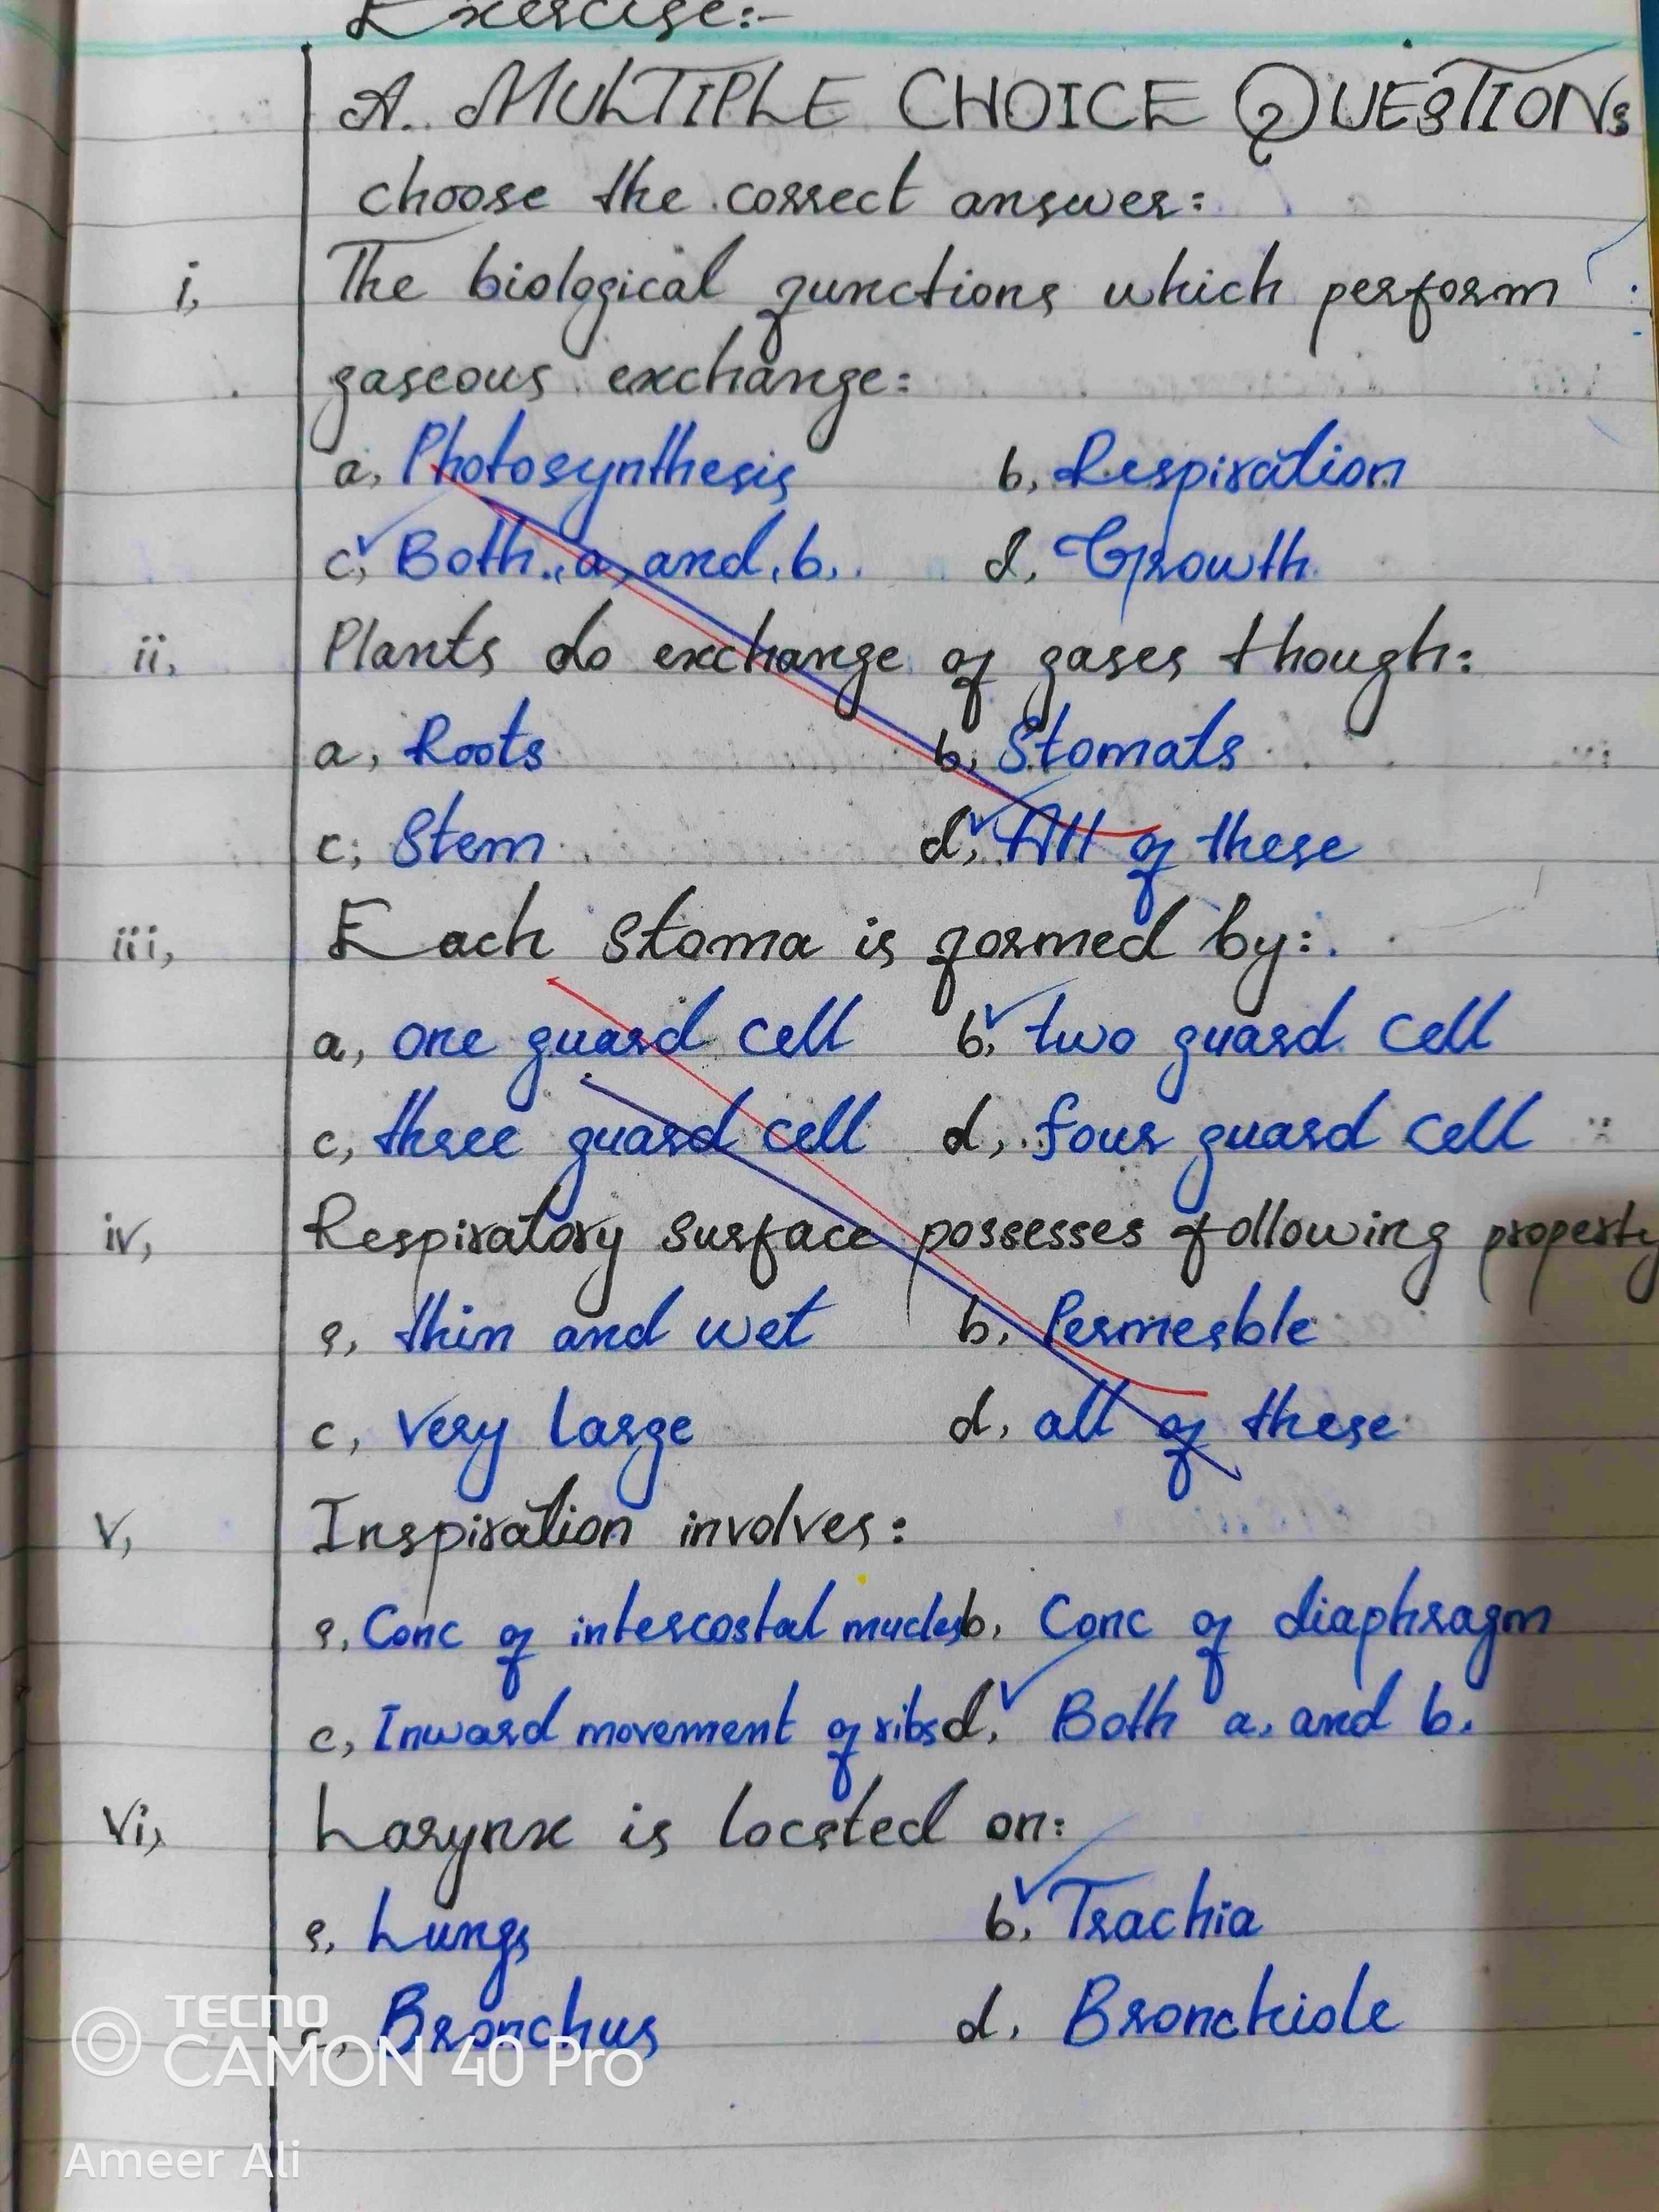 Exercise:-
A. MULTIPLE CHOICE QUESTIONs
choose the correct answer:
i, The biological functions which perform
gaseous exchange:
a, Photosynthesis b, Respiration
c, Both a, and b, d, Growth
ii, Plants do exchange of gases though:
a, Roots b, Stomats
c, Stem d, All of these
iii, Each stoma is formed by:
a, one guard cell b, two guard cell
c, three guard cell d, four guard cell
iv, Respiratory surface possesses following property
a, thin and wet b, Permeable
c, very large d, all of these
v, Inspiration involves:
a, Conc of intercostal mucles b, Conc of diaphragm
c, Inward movement of ribs d, Both a, and b.
vi, Larynx is located on:
a, Lungs b, Trachia
c, Bronchus d, Bronchiole
TECNO
CAMON 40 Pro
Ameer Ali